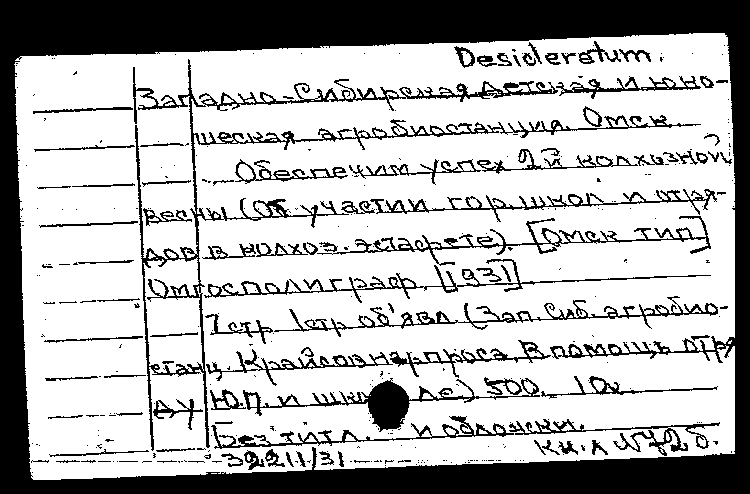 Desideratum.
Западно-Сибирская детская и юно-
шеская агробиостанция. Омск.
Обеспечим успех 2й колхозной
весны (Об участии гор. школ и отря-
дов в колхоз. эстафете). [Омск тип]
Омгосполиграф. [1931]
7 стр 1стр об'явл. (Зап. Сиб. агробио-
станц. Крайлоэнарпроса. В помощь отря
ду Ю.П. и шк ле) 500. 10к.
[Без титл. и обложки.
32211/31 Кн.л N72б.